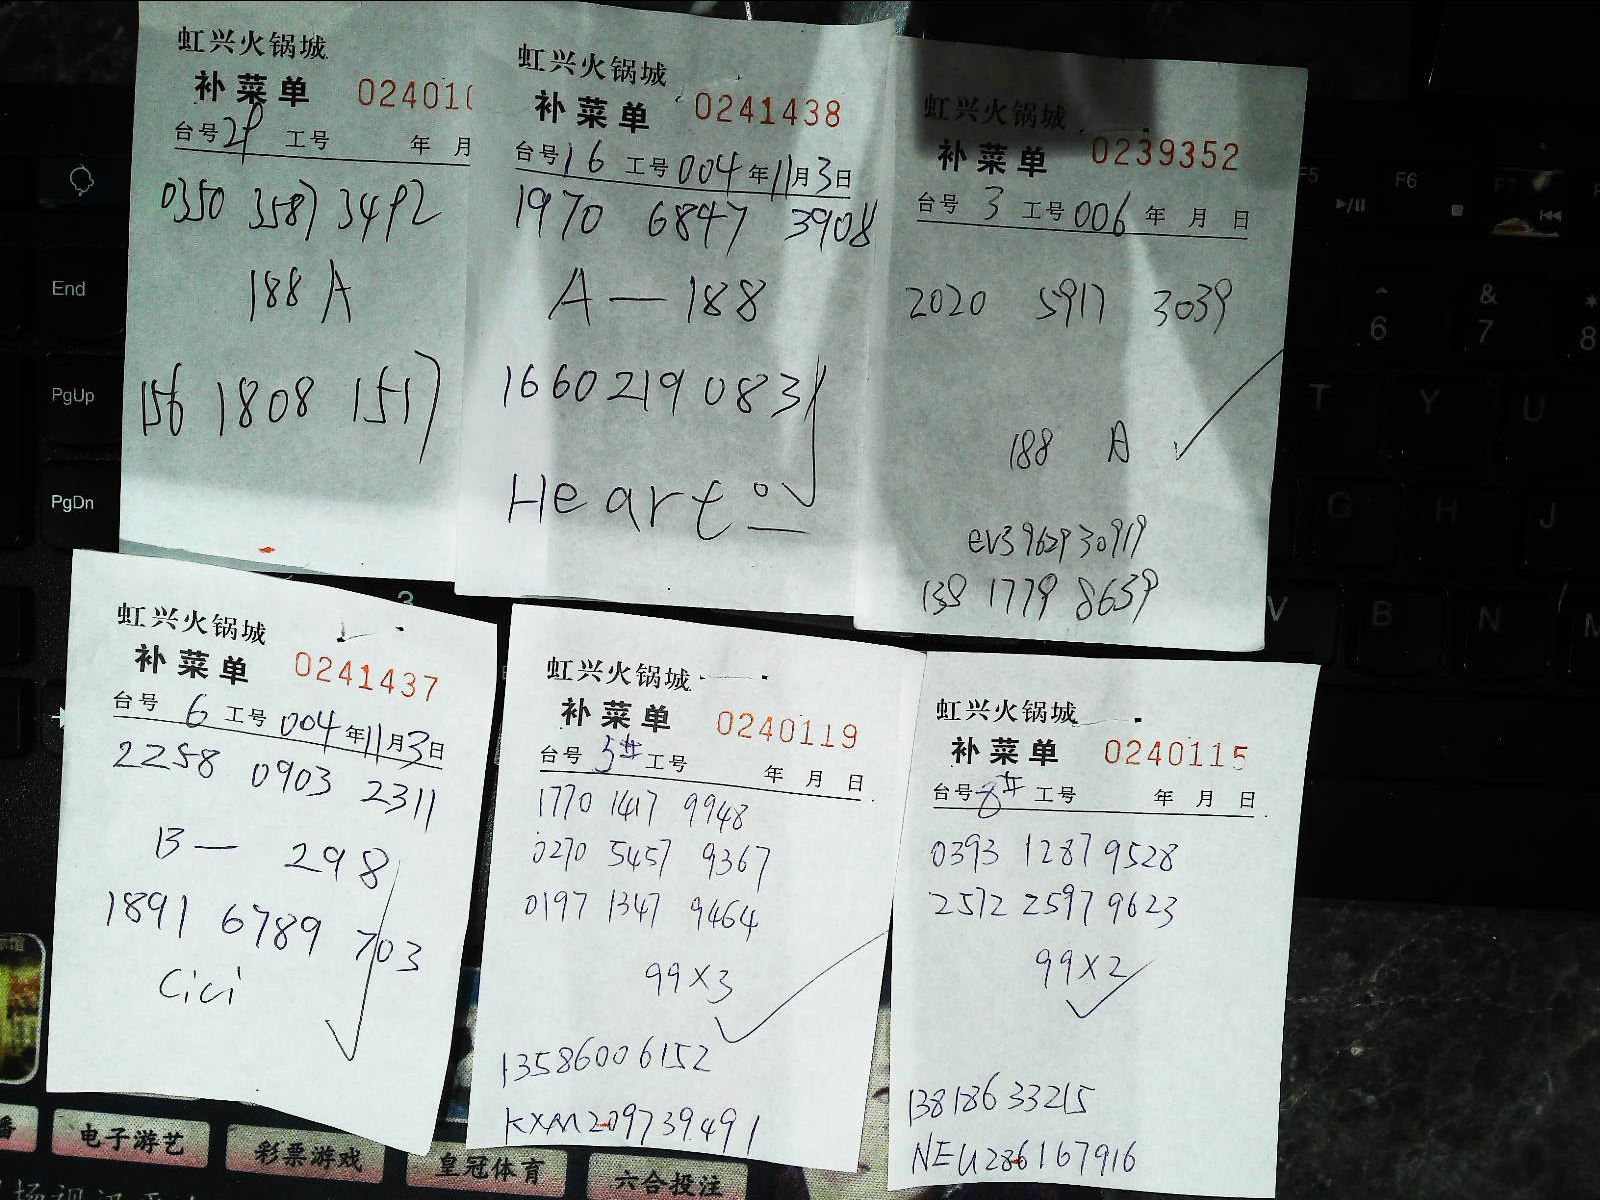 虹兴火锅城
补菜单 024010
台号 29 工号 年 月
0350 3587 3492
188 A
156 1808 1517
虹兴火锅城
补菜单 0241438
台号 16 工号 004 年 11 月 3 日
1970 6847 3908
A — 188
16602190831
Heart
虹兴火锅城
补菜单 0239352
台号 3 工号 006 年 月 日
2020 5917 3039
188 A
ev3962930919
138 1779 8639
虹兴火锅城
补菜单 0241437
台号 6 工号 004 年 11 月 3 日
2258 0903 2311
B — 298
1891 6789 703
Cici
虹兴火锅城
补菜单 0240119
台号 5# 工号 年 月 日
1770 1417 9948
0270 5457 9367
0197 1347 9464
99×3
13586006152
KXM209739491
虹兴火锅城
补菜单 0240115
台号 8# 工号 年 月 日
0393 1287 9528
2572 2597 9623
99×2
13818633215
NEU286167916
End
PgUp
PgDn
3
F5
F6
F7
&
6
7
8
T
Y
U
G
H
J
V
B
N
M
电子游艺
彩票游戏
皇冠体育
六合投注